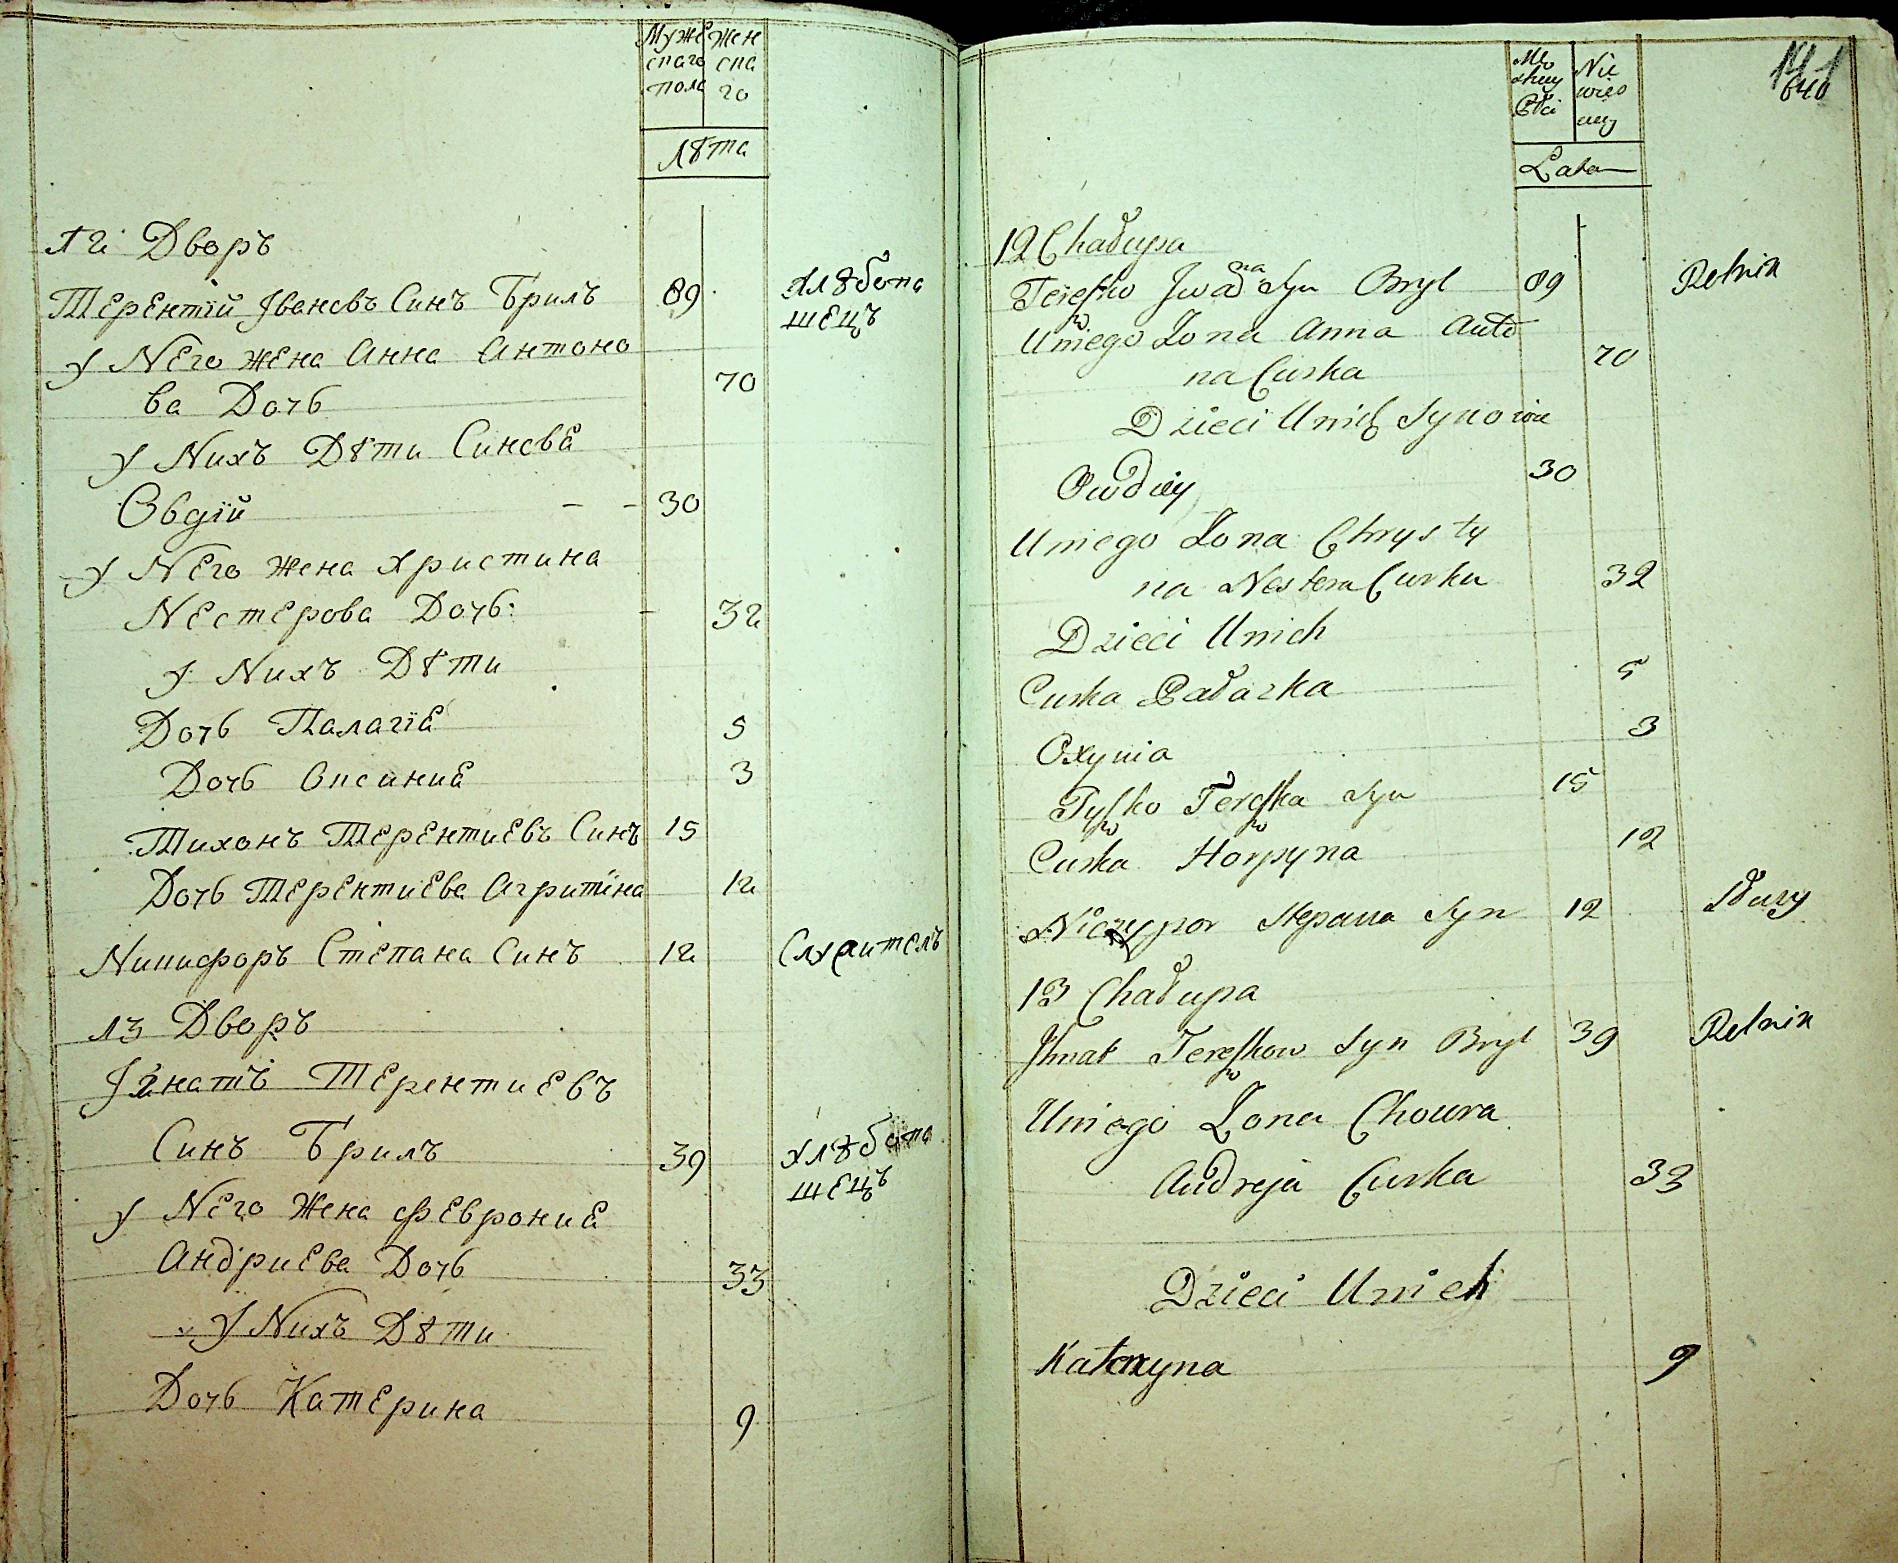 Муже Жен
скаго ска
пола го
Лѣта
12 Дворъ
Терентїй Івановъ Синъ Брилъ 89 Хлѣбопа
шецъ
у Него жена Анна Антоно
ва Дочь 70
у Нихъ Дѣти Синова
Овдїй - - 30
у Него жена Христина
Нестерова Дочь - 32
у Нихъ Дѣти
Дочь Палагїа 5
Дочь Оксиниа 3
Тихонъ Терентиевъ Синъ 15
Дочь Терентиева Агрипина 12
Никифоръ Степана Синъ 12 Служителъ
13 Дворъ
Игнатъ Терентиевъ
Синъ Брилъ 39 Хлѣбопа
шецъ
у Него Жена Феврониа
Андриева Дочь 33
у Нихъ Дѣти
Дочь Катерина 9
141
Mę Nie
skiey wies
Płci ciey
Lata
12 Chałupa
Tereszko Jwana Syn Bryl 89 Rolnik
Uniego Żona Anna Anto 70
na Curka
Dzieci Unich Synowie
Owdiey 30
Uniego Żona Chrysty
na Nestera Curka 32
Dzieci Unich
Curka Pałazka 5
Oxynia 3
Tyszko Tereszka Syn 15
Curka Horpyna 12
Niczypor Stepana Syn 12 Słuzy
13 Chałupa
Jhnat Tereszkow Syn Bryl 39 Rolnik
Uniego Żona Chowra
Andreja Curka 33
Dzieci Unich
Katerzyna 9